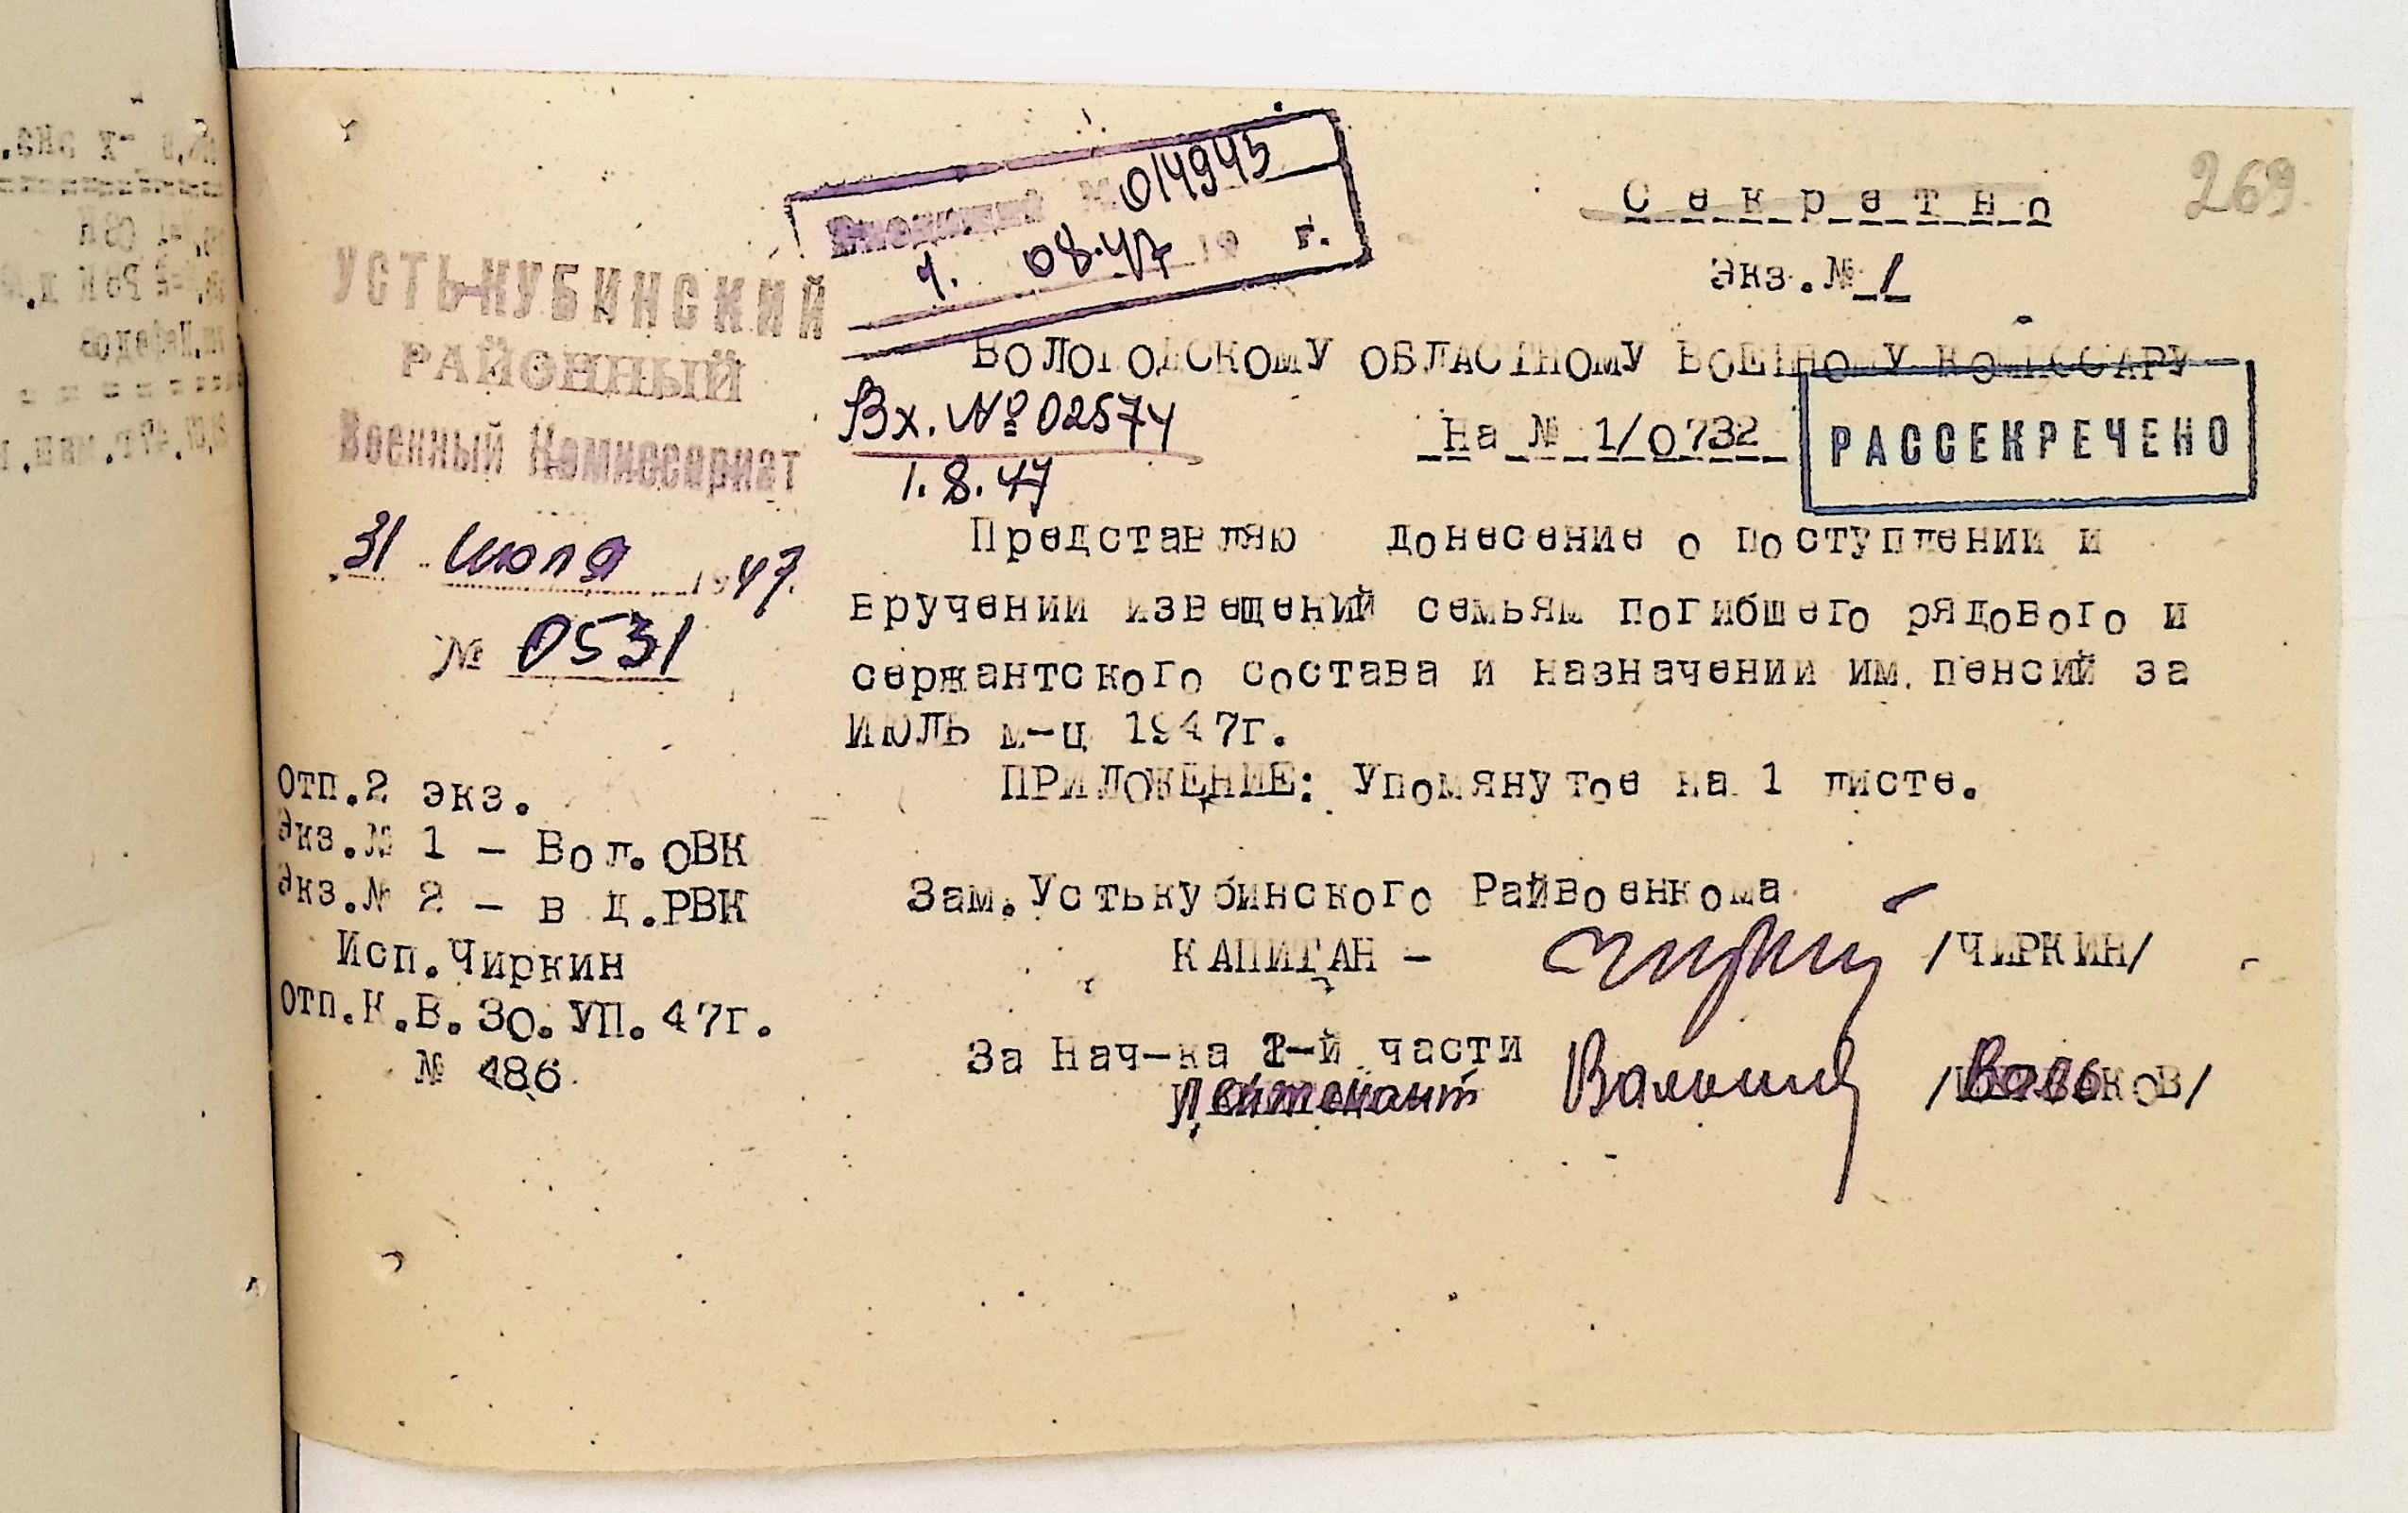 269
Секретно
Экз.№ 1
Входящий № 014945
1. 08.47 19 г.
УСТЬ-КУБИНСКИЙ
РАЙОННЫЙ
Военный Комиссариат
31 июля 1947.
№ 0531
ВОЛОГОДСКОМУ ОБЛАСТНОМУ ВОЕННОМУ КОМИССАРУ
Вх. № 02574
1.8.47
На № 1/0732
РАССЕКРЕЧЕНО
Представляю донесение о поступлении и
вручении извещений семьям погибшего рядового и
сержантского состава и назначении им. пенсий за
ИЮЛЬ м-ц 1947г.
ПРИЛОЖЕНИЕ: Упомянутое на 1 листе.
Отп.2 экз.
Экз.№ 1 - Вол.ОВК
Экз.№ 2 - в д.РВК
Исп.Чиркин
Отп.К.В.30.УП.47г.
№ 486
Зам.Устькубинского Райвоенкома
КАПИТАН - /ЧИРКИН/
За Нач-ка 2-й части
Лейтенант